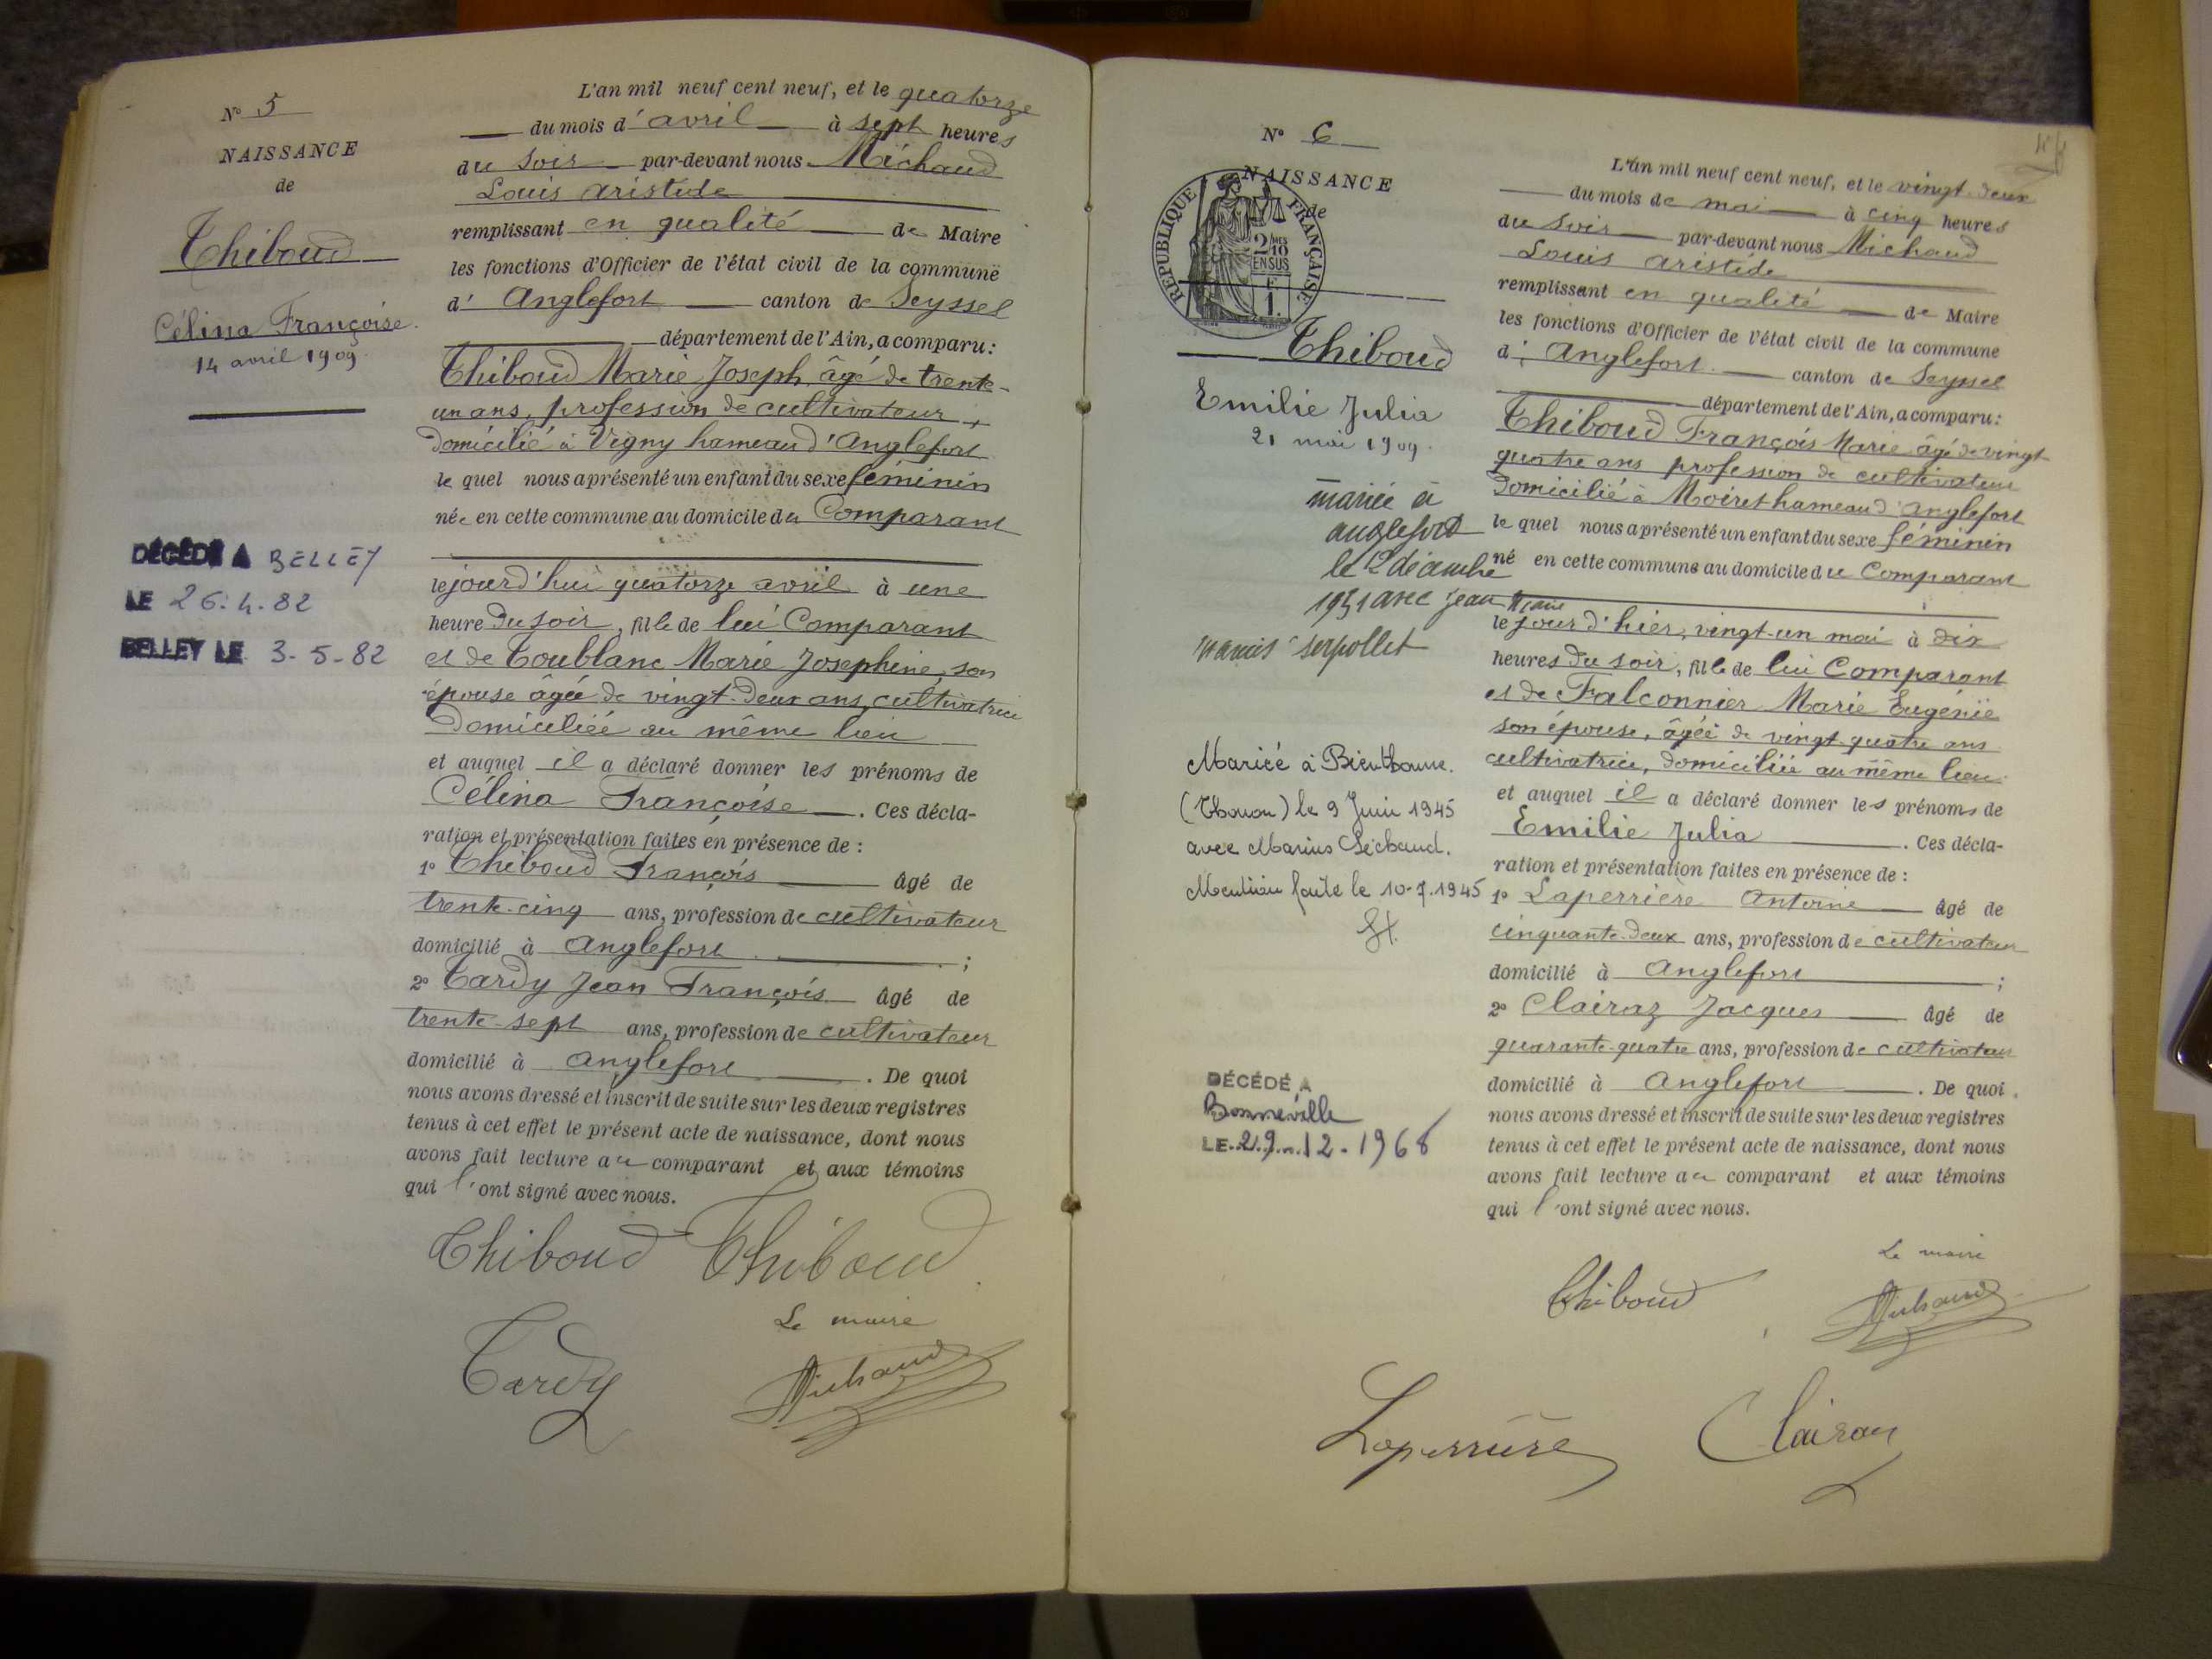 N° 5
NAISSANCE
de
Thiboud
Célina Françoise
14 avril 1909
DÉCÉDÉ A BELLEY
LE 26.4.82
BELLEY LE 3-5-82
L'an mil neuf cent neuf, et le quatorze
du mois d'avril à sept heures
du soir par-devant nous Michaud
Louis Aristide
remplissant en qualité de Maire
les fonctions d'Officier de l'état civil de la commune
d' Anglefort canton de Seyssel
département de l'Ain, a comparu :
Thiboud Marie Joseph, âgé de trente-
un ans, profession de cultivateur,
domicilié à Vigny hameau d'Anglefort
le quel nous a présenté un enfant du sexe féminin
née en cette commune au domicile du Comparant
le jourd'hui quatorze avril à une
heure du soir, fille de lui Comparant
et de Toublanc Marie Josephine, son
épouse âgée de vingt-deux ans, cultivatrice
domiciliée au même lieu
et auquel il a déclaré donner les prénoms de
Célina Françoise. Ces décla-
ration et présentation faites en présence de :
1° Thiboud François âgé de
trente-cinq ans, profession de cultivateur
domicilié à Anglefort ;
2° Tardy Jean François âgé de
trente-sept ans, profession de cultivateur
domicilié à Anglefort. De quoi
nous avons dressé et inscrit de suite sur les deux registres
tenus à cet effet le présent acte de naissance, dont nous
avons fait lecture au comparant et aux témoins
qui l'ont signé avec nous.
Thiboud Thiboud
Le maire
Tardy Michaud
N° 6
NAISSANCE
de
RÉPUBLIQUE FRANÇAISE
2/10 MES
EN SUS
F
1.
Thiboud
Emilie Julia
21 mai 1909
mariée à
anglefort
le 12 décembre
1931 avec Jean Marie
Marius Serpollet
Mariée à
(Thonon) le 9 Juin 1945
avec Marius
Mention faite le 10-7.1945
DÉCÉDÉ A
Bonneville
LE 29-12-1968
L'an mil neuf cent neuf, et le vingt-deux
du mois de mai à cinq heures
du soir par-devant nous Michaud
Louis Aristide
remplissant en qualité de Maire
les fonctions d'Officier de l'état civil de la commune
d' Anglefort canton de Seyssel
département de l'Ain, a comparu :
Thiboud François Marie âgé de vingt
quatre ans profession de cultivateur
domicilié à Moiret hameau d'Anglefort
le quel nous a présenté un enfant du sexe féminin
né en cette commune au domicile du Comparant
le jour d'hier, vingt-un mai à dix
heures du soir, fille de lui Comparant
et de Falconnier Marie Eugénie
son épouse, âgée de vingt-quatre ans
cultivatrice, domiciliée au même lieu
et auquel il a déclaré donner les prénoms de
Emilie Julia. Ces décla-
ration et présentation faites en présence de :
1° Laperrière Antoine âgé de
cinquante-deux ans, profession de cultivateur
domicilié à Anglefort ;
2° Clairaz Jacques âgé de
quarante-quatre ans, profession de cultivateur
domicilié à Anglefort. De quoi
nous avons dressé et inscrit de suite sur les deux registres
tenus à cet effet le présent acte de naissance, dont nous
avons fait lecture au comparant et aux témoins
qui l'ont signé avec nous.
Le maire
Thiboud Michaud
Laperrière Clairaz